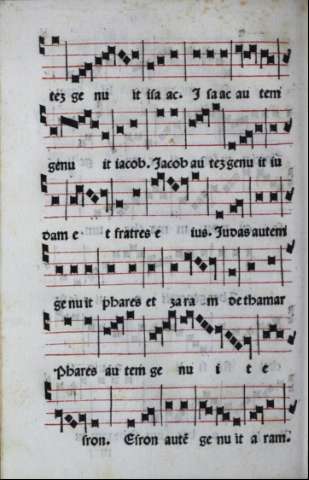 tez ge nu it isa ac. I sa ac au tem
genu it iacob. Jacob au tez genu it iu
dam e t fratres e ius. Iudas autem
ge nu it phares et za ra m de thamar
Phares au tem ge nu i t e
sron. Esron autē ge nu it a ram.